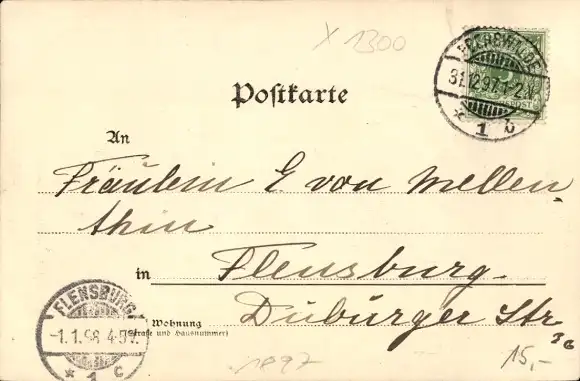 X 1300
31.12.97.1-2.N.
* 1 b
Postkarte
An
Fräulein E von Mellen,
thin
in Flensburg.
Duburger Str.
Wohnung
(Straße und Hausnummer)
FLENSBURG
-1.1.98.4-5V.
* 1 c
1897
15,-